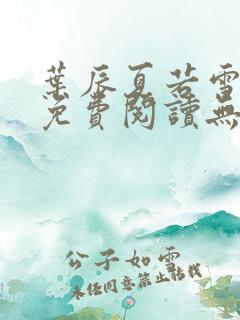 葉辰夏若雪
免費閱讀無
公子如雪
未經同意禁止轉載